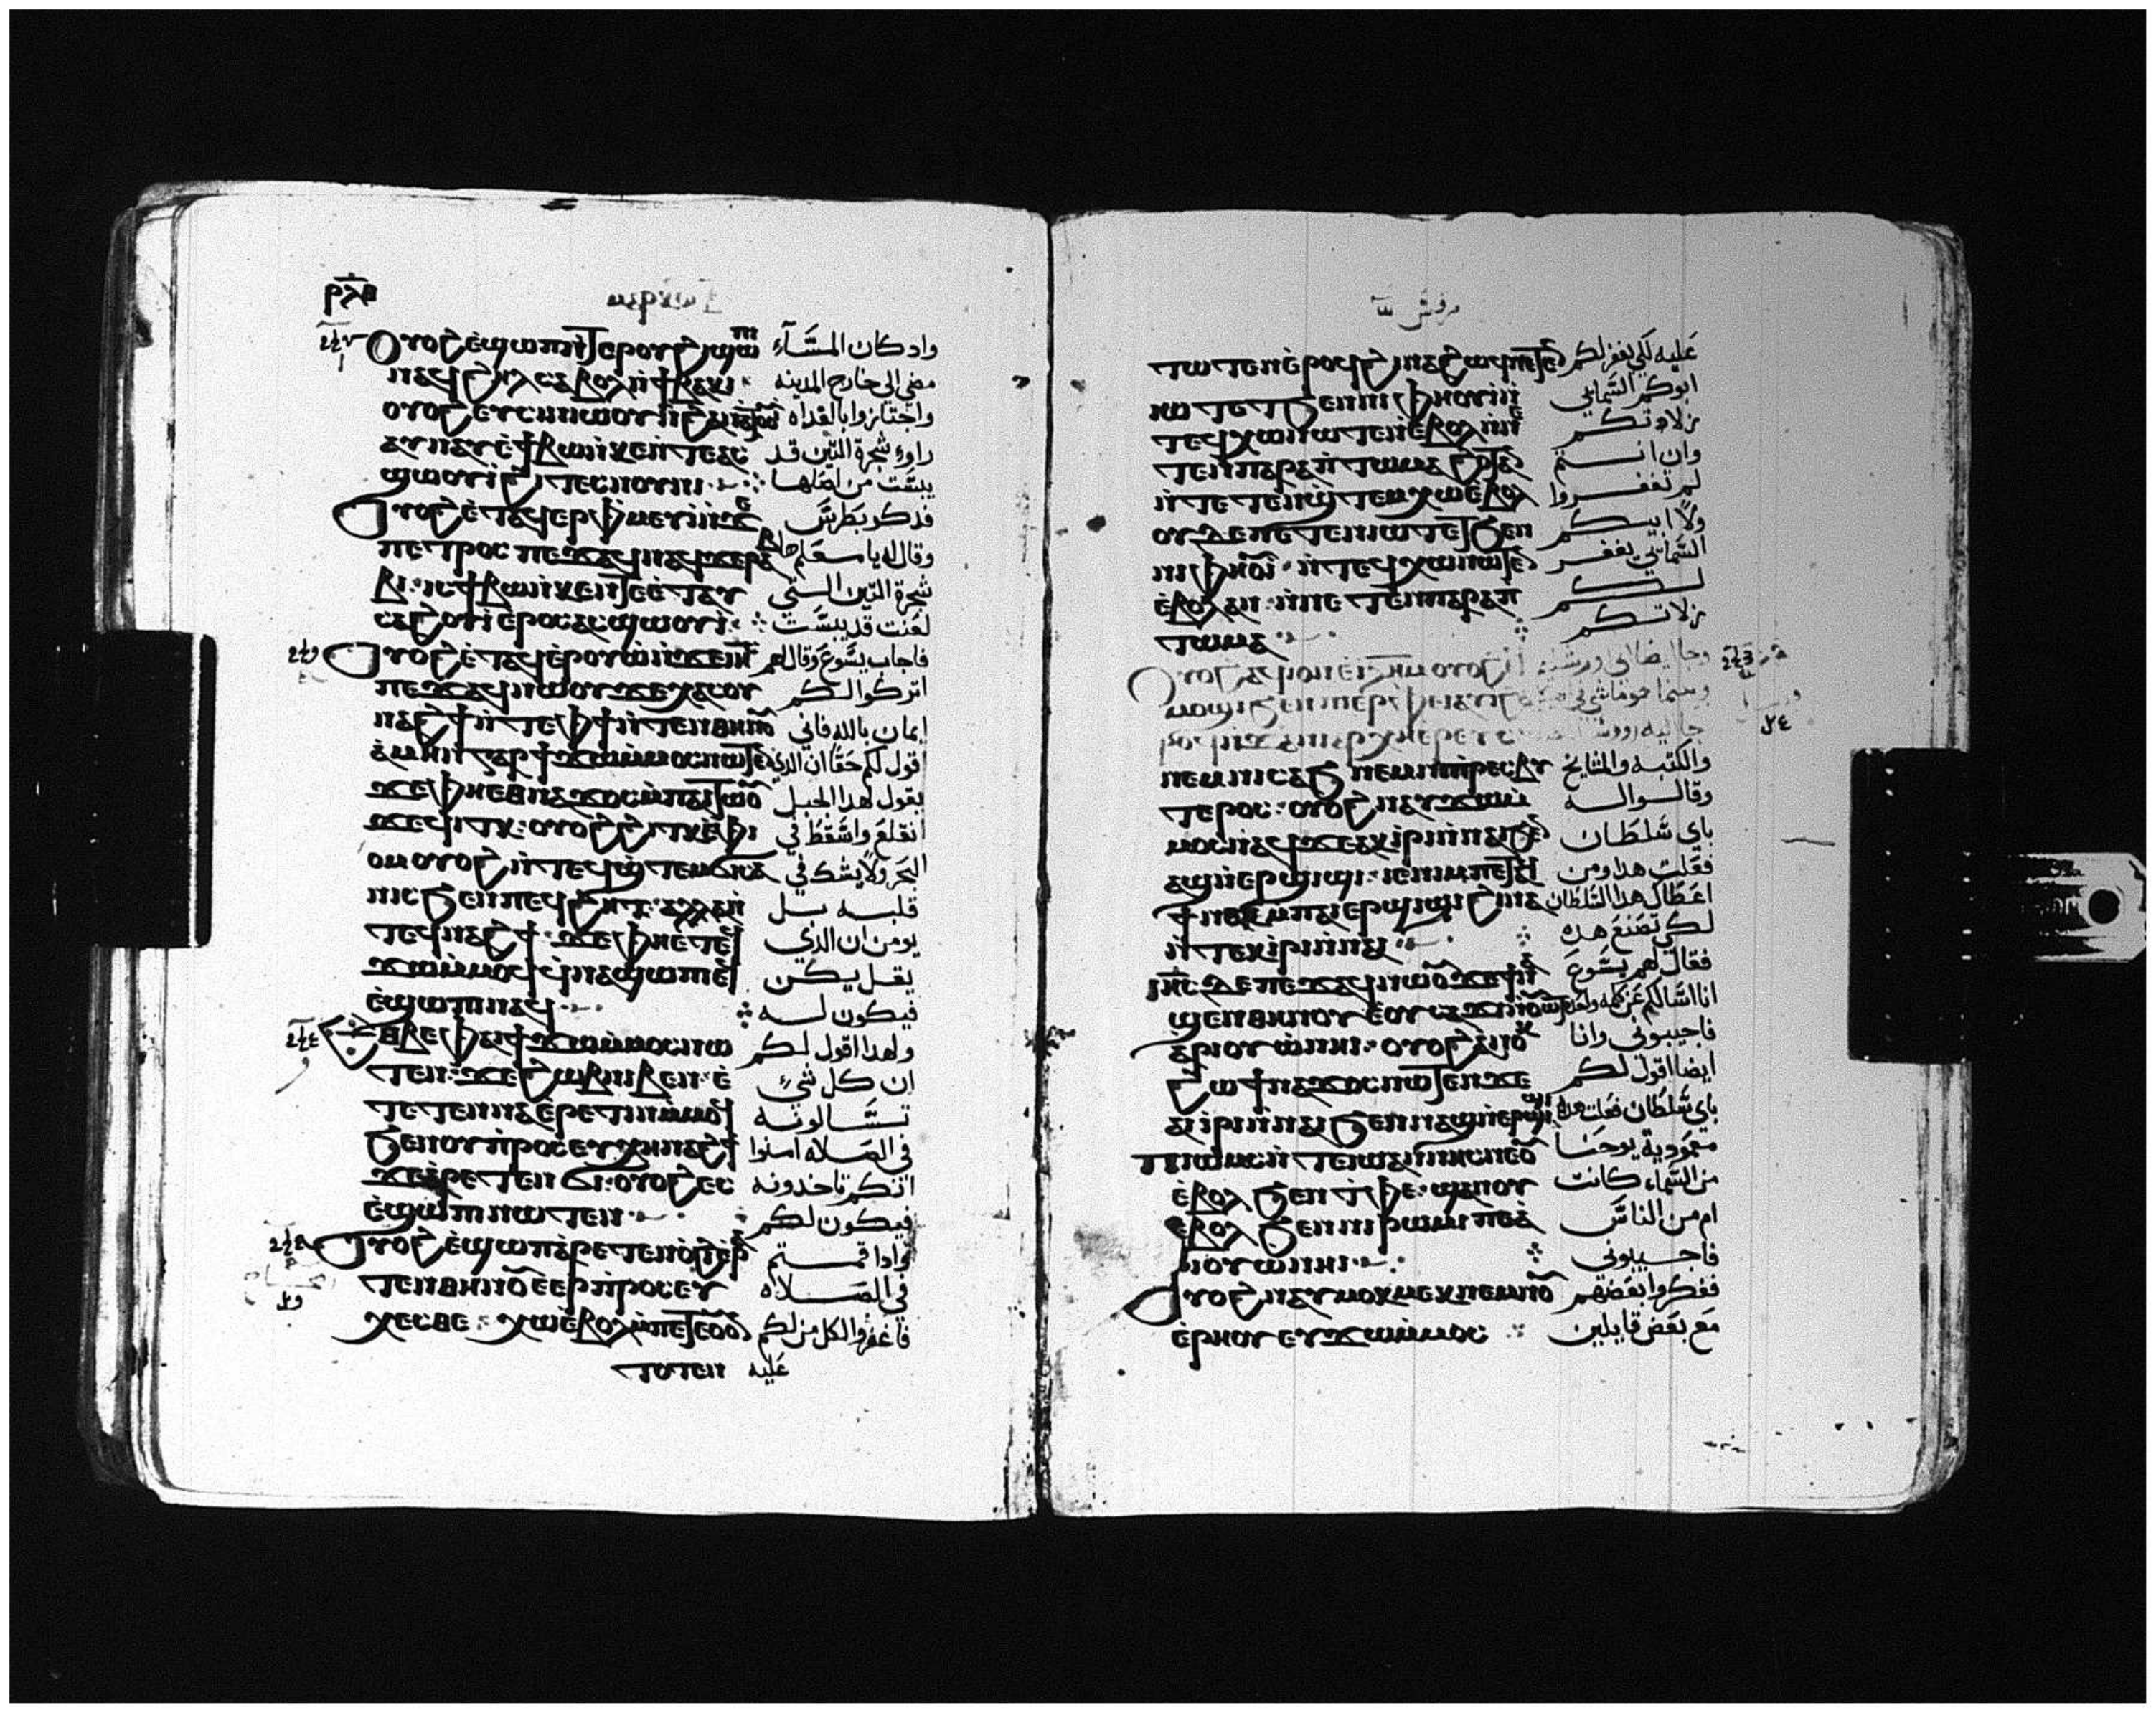 ⲟⲩⲟϩ ⲉ̀ϣⲱⲡ ⲛ̀ϯⲉⲣⲟⲩϩⲓ ϣⲱⲡⲓ واد كان المسآء
ⲛⲁϥϩⲏⲗ ⲥⲁⲃⲟⲗ ⲛ̀ϯⲃⲁⲕⲓ مضي الى خارج المدينه
ⲟⲩⲟϩ ⲉⲩⲥⲓⲛⲓⲱⲟⲩⲓ واجتازوا بالغداه
ⲁⲩⲛⲁⲩ ⲉ̀ϯⲃⲱ ⲛ̀ⲕⲉⲛⲧⲉ ⲁⲥ راوا شجرة التين قد
ϣⲱⲟⲩⲓ̀ ϩⲓ ⲧⲉⲥⲛⲟⲩⲛⲓ يبست من اصلها
ⲟⲩⲟϩ ⲉ̀ⲧⲁϥⲉⲣⲫⲙⲉⲩⲓ̀ ⲛ̀ϫⲉ فدكر بطرس
ⲡⲉⲧⲣⲟⲥ ⲡⲉϫⲁϥ ⲛⲁϥ ϫⲉ ⲣⲁⲃ وقال له يا معلم ها
ⲃⲓ ⲓⲥ ϯⲃⲱ ⲛ̀ⲕⲉⲛⲧⲉ ⲉ̀ⲧⲁⲩ شجرة التين التي
ⲥⲁϩⲟⲩⲓ̀ ⲉⲣⲟⲥ ⲁⲥϣⲱⲟⲩⲓ̀ لعنت قد يبست
ⲟⲩⲟϩ ⲉ̀ⲧⲁϥⲉ̀ⲣⲟⲩⲱ̀ ⲛ̀ϫⲉ ⲓⲏⲥ فاجاب يسوع وقال لهم
ⲡⲉϫⲁϥ ⲛⲱⲟⲩ ϫⲉ ⲭⲁⲥⲟⲩ اتركوا لكم
ⲛⲁϩϯ ⲛ̀ⲧⲉ ⲫϯ ⲛ̀ⲧⲉⲛⲑⲏⲛⲟⲩ ايمان بالله فاني
ⲁ̀ⲙⲏⲛ ⲅⲁⲣ ϯϫⲱ ⲙ̀ⲙⲟⲥ ⲛⲱⲧⲉⲛ اقول لكم حقا ان الدي
ϫⲉ ⲫⲏⲉⲑⲛⲁϫⲟⲥ ⲙ̀ⲡⲁⲓⲧⲱⲟⲩ يقول لهدا الجبل
ϫⲉ ϥⲓⲧⲕ ⲟⲩⲟϩ ϩⲓⲧⲕ ⲉ̀ⲫⲓ انقلع واسقط في
ⲟⲙ ⲟⲩⲟϩ ⲛ̀ⲧⲉϥϣ̀ⲧⲉⲙϭⲓⲥⲁ البحر ولا يشك في
ⲛⲓⲥ ϧⲉⲛ ⲡⲉϥϩⲏⲧ ⲁⲗⲗⲁ ⲛ̀ قلبه بل
ⲧⲉϥⲛⲁϩϯ ϫⲉ ⲫⲏⲉⲧⲉϥ يومن ان الدي
ϫⲱ ⲙ̀ⲙⲟϥ ϥⲛⲁϣⲱⲡⲓ ⲉϥ يقل يكن
ⲉ̀ϣⲱⲡⲓ ⲛⲁϥ فيكون له
ⲉⲑⲃⲉ ⲫⲁⲓ ϯϫⲱ ⲙ̀ⲙⲟⲥ ⲛⲱ ولهدا اقول لكم
ⲧⲉⲛ ϫⲉ ϩⲱⲃ ⲛⲓⲃⲉⲛ ⲉ̀ ان كل شيء
ⲧⲉⲧⲉⲛⲛⲁⲉ̀ⲣⲉⲧⲓⲛ ⲙ̀ⲙⲟϥ تسالونه
ϧⲉⲛ ⲟⲩⲡ̀ⲣⲟⲥⲉⲩⲭⲏ ⲛⲁϩϯ في الصلاه امنوا
ϫⲉ ⲁ̀ⲣⲉⲧⲉⲛϭⲓ ⲟⲩⲟϩ ⲉⲥ انكم تاخدونه
ⲉ̀ϣⲱⲡⲓ ⲛⲱⲧⲉⲛ فيكون لكم
ⲟⲩⲟϩ ⲉ̀ϣⲱⲡ ⲁ̀ⲣⲉⲧⲉⲛⲟ̀ϩⲓ ⲉ̀ⲣⲁ وادا قمتم
ⲧⲉⲛⲑⲏⲛⲟⲩ ⲉ̀ⲉⲣⲡ̀ⲣⲟⲥⲉⲩ في الصلاه
ⲭⲉⲥⲑⲉ ⲭⲱ ⲉ̀ⲃⲟⲗ ⲙ̀ⲡⲉⲧⲉⲟⲩⲟⲛ فاغفروا لكل من لكم
ⲧⲱⲧⲉⲛ عليه
مرقس
ⲧⲱⲧⲉⲛ ⲉ̀ⲣⲟϥ ϩⲓⲛⲁ ϩⲱϥ ⲡⲉⲧⲉⲛ عليه لكي يغفر لكم
ⲓⲱⲧ ⲉⲧϧⲉⲛ ⲛⲓⲫⲏⲟⲩⲓ̀ ⲛ̀ ابوكم السماني
ⲧⲉϥⲭⲱ ⲛⲱⲧⲉⲛ ⲉ̀ⲃⲟⲗ ⲛ̀ⲛⲉ زلاتكم
ⲧⲉⲛⲡⲁⲣⲁⲡⲧⲱⲙⲁ وان انتم
ⲛ̀ⲧⲉⲧⲉⲛϣ̀ⲧⲉⲙⲭⲱ ⲉ̀ⲃⲟⲗ لم تغفروا
ⲟⲩⲇⲉ ⲡⲉⲧⲉⲛⲓⲱⲧ ⲉⲧϧⲉⲛ ولا ابيكم
ⲛⲓⲫⲏⲟⲩⲓ̀ ⲛ̀ⲧⲉϥⲭⲱ ⲛⲱⲧⲉⲛ السماني يغفر
ⲉ̀ⲃⲟⲗ ⲁⲛ ⲛ̀ⲛⲉⲧⲉⲛⲡⲁⲣⲁⲡ لكم
ⲧⲱⲙⲁ زلاتكم
ⲟⲩⲟϩ ⲁϥⲓ̀ ⲟⲛ ⲉ̀ⲓ̅ⲗ̅ⲏ̅ⲙ̅ ⲟⲩⲟϩ وجا ايضا الى اورشليم
ⲙⲟϣⲓ ϧⲉⲛ ⲡⲓⲉⲣⲫⲉⲓ ⲁⲩⲓ̀ وبينما هو ماشي في
جا اليه روسا
ⲛⲉⲙ ⲛⲓⲥⲁϧ ⲛⲉⲙ ⲛⲓⲡ̀ⲣⲉⲥⲃⲩ والكتبه والمشايخ
ⲧⲉⲣⲟⲥ ⲟⲩⲟϩ ⲛⲁⲩϫⲱ ⲙ̀ وقالوا له
ⲙⲟⲥ ⲛⲁϥ ϫⲉ ⲁⲕⲓⲣⲓ ⲛ̀ⲛⲁⲓ ϧⲉⲛ باي سلطان
ⲁϣ ⲛ̀ⲉⲣϣⲓϣⲓ ⲓⲉ ⲛⲓⲙ ⲡⲉⲧⲁϥ فعلت هدا ومن
ϯ ⲛⲁⲕ ⲙ̀ⲡⲁⲓⲉⲣϣⲓϣⲓ ϩⲓⲛⲁ اعطاك هدا السلطان
ⲛ̀ⲧⲉⲕⲓⲣⲓ ⲛ̀ⲛⲁⲓ لكي تصنع هده
ⲓⲏⲥ ⲇⲉ ⲡⲉϫⲁϥ ⲛⲱⲟⲩ ϫⲉ ϯⲛⲁ فقال لهم يسوع
ϣⲉⲛ ⲑⲏⲛⲟⲩ ⲉ̀ⲟⲩⲥⲁϫⲓ انا اسالكم عن كلمه واحده
ⲁ̀ⲣⲓⲟⲩⲱ̀ ⲛⲏⲓ ⲟⲩⲟϩ ⲁⲛⲟⲕ فاجيبوني وانا
ϩⲱ ϯⲛⲁϫⲟⲥ ⲛⲱⲧⲉⲛ ϫⲉ ايضا اقول لكم
ⲁⲓⲓⲣⲓ ⲛ̀ⲛⲁⲓ ϧⲉⲛ ⲁϣ ⲛ̀ⲉⲣϣⲓϣⲓ باي سلطان فعلت هدا
ⲡⲓⲱⲙⲥ ⲛ̀ⲧⲉ ⲓⲱⲁⲛⲛⲏⲥ ⲛⲉ ⲟⲩ معمودية يوحنا
ⲉ̀ⲃⲟⲗ ϧⲉⲛ ⲧ̀ⲫⲉ ϣⲁⲛ ⲟⲩ من السماء كانت
ⲉ̀ⲃⲟⲗ ϧⲉⲛ ⲛⲓⲣⲱⲙⲓ ⲡⲉ ⲁ ام من الناس
ⲣⲓⲟⲩⲱ̀ ⲛⲏⲓ فاجيبوني
ⲟⲩⲟϩ ⲛⲁⲩⲙⲟⲕⲙⲉⲕ ⲛⲉⲙ ⲛⲟⲩ ففكروا بعضهم
ⲉ̀ⲣⲏⲟⲩ ⲉⲩϫⲱ ⲙ̀ⲙⲟⲥ مع بعض قايلين